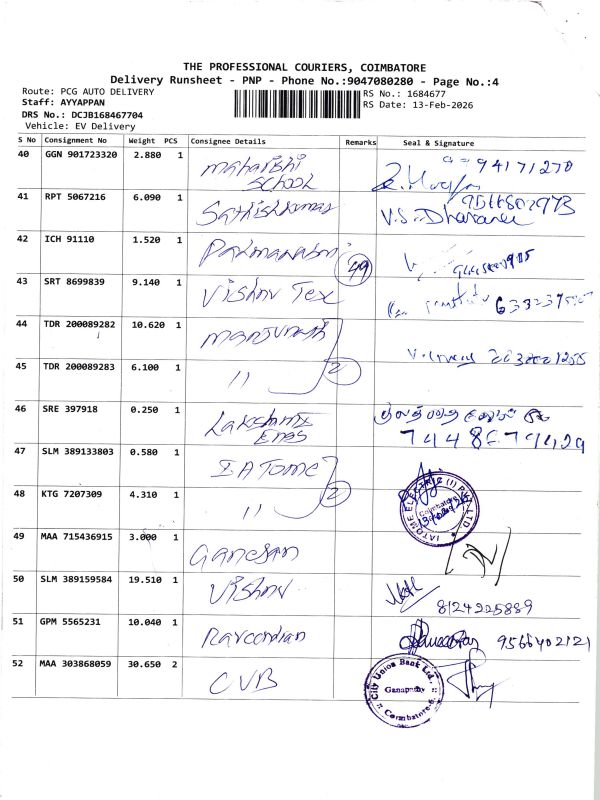 THE PROFESSIONAL COURIERS, COIMBATORE
Delivery Runsheet - PNP - Phone No.:9047080280 - Page No.:4
Route: PCG AUTO DELIVERY
RS No.: 1684677
Staff: AYYAPPAN
RS Date: 13-Feb-2026
DRS No.: DCJB168467704
Vehicle: EV Delivery
S No Consignment No Weight PCS Consignee Details Remarks Seal & Signature
40 GGN 901723320 2.880 1 Maharishi School 94171270
41 RPT 5067216 6.090 1 V.S. Dharanee
42 ICH 91110 1.520 1 49
43 SRT 8699839 9.140 1 Vishnu Tex
44 TDR 200089282 10.620 1 Manjunath
45 TDR 200089283 6.100 1 11 2
46 SRE 397918 0.250 1 Lakshmi Engs
47 SLM 389133803 0.580 1 IATOME
48 KTG 7207309 4.310 1 11 2 IATOME ELECTRIC (I) PVT. LTD. Coimbatore
49 MAA 715436915 3.000 1 Ganesan
50 SLM 389159584 19.510 1 Vishnu 8124225889
51 GPM 5565231 10.040 1 9566402121
52 MAA 303868059 30.650 2 CVB City Union Bank Ltd. Ganapathy Coimbatore-6.